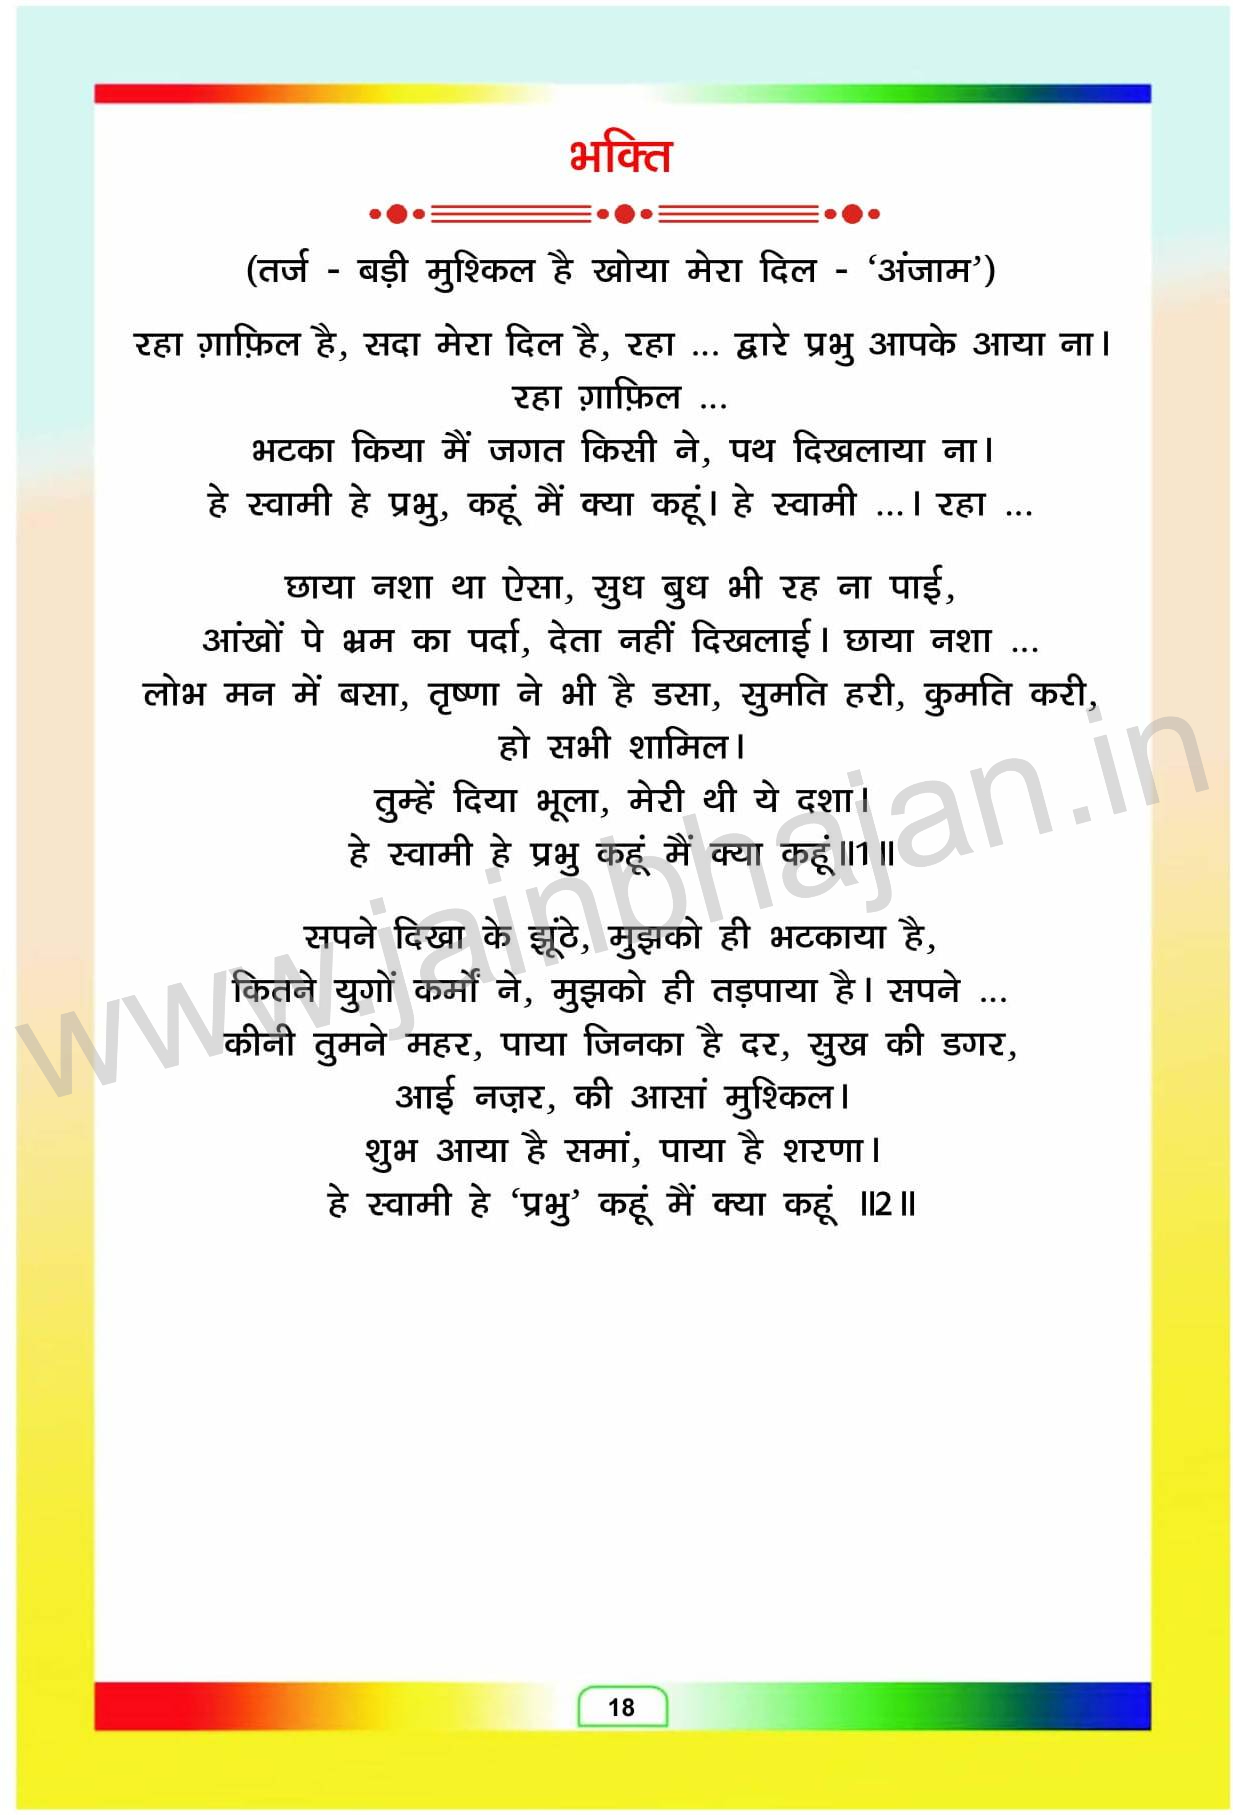 भक्ति
(तर्ज - बड़ी मुश्किल है खोया मेरा दिल - ‘अंजाम’)
रहा ग़ाफ़िल है, सदा मेरा दिल है, रहा ... द्वारे प्रभु आपके आया ना।
रहा ग़ाफ़िल ...
भटका किया मैं जगत किसी ने, पथ दिखलाया ना।
हे स्वामी हे प्रभु, कहूं मैं क्या कहूं। हे स्वामी ...। रहा ...
छाया नशा था ऐसा, सुध बुध भी रह ना पाई,
आंखों पे भ्रम का पर्दा, देता नहीं दिखलाई। छाया नशा ...
लोभ मन में बसा, तृष्णा ने भी है डसा, सुमति हरी, कुमति करी,
हो सभी शामिल।
तुम्हें दिया भूला, मेरी थी ये दशा।
हे स्वामी हे प्रभु कहूं मैं क्या कहूं॥1॥
सपने दिखा के झूंठे, मुझको ही भटकाया है,
कितने युगों कर्मों ने, मुझको ही तड़पाया है। सपने ...
कीनी तुमने महर, पाया जिनका है दर, सुख की डगर,
आई नज़र, की आसां मुश्किल।
शुभ आया है समां, पाया है शरणा।
हे स्वामी हे ‘प्रभु’ कहूं मैं क्या कहूं ॥2॥
www.jainbhajan.in
18